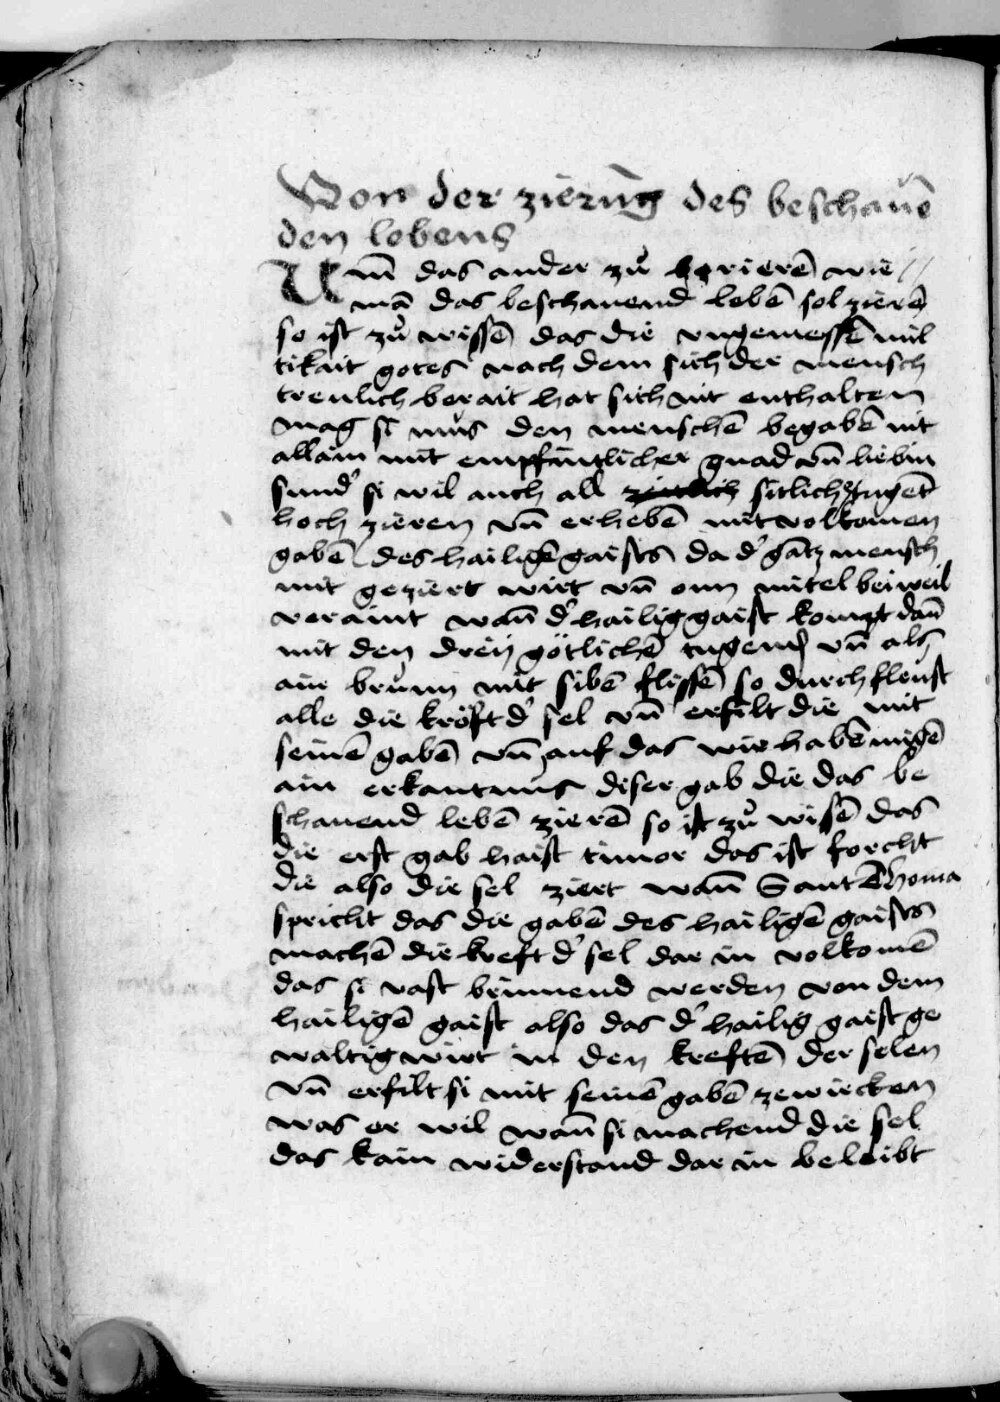 Von der zierūg des beschauē
den lebens
Um̄ das ander zů berierē wie
mā das beschauend lebē sol zierē
so ist zů wissē das die vngemessē mil
tikait gotes nach dem sich der mensch
treulich berait hat sich nit enthalten
mag si můs den menschē begabē nit
allain mit empfintlicher gnad vn̄ liebin
sund' si wil auch all sitlich tugēt
hoch zieren vn̄ erhebē mit volkomen
gabē des hailigē gaists da d' gātz mensch
mit geziert wirt vn̄ onn mitel beiweil
veraint wan̄ d' hailig gaist kompt dan̄
mit den dreÿ götlichē tugend vn̄ als
ain brun̄n mit sibē flissē so durchfleust
alle die kröft d' sel vn̄ erfilt die mit
seinē gabē vn̄ auf das wir habē migē
ain erkantnus diser gab die das be
schauend lebē zierē so ist zů wisē das
die erst gab haist timor das ist forcht
die also die sel ziert wan̄ Sant Thoma
spricht das die gabē des hailigē gaists
machē die kreft d' sel dar in volkomē
das si vast brinnend werden von dem
hailigē gaist also das d' hailig gaist ge
waltig wirt in den kreftē der selen
vn̄ erfilt si mit seinē gabē zewircken
was er wil wan̄ si machend die sel
das kain widerstand dar in beleibt